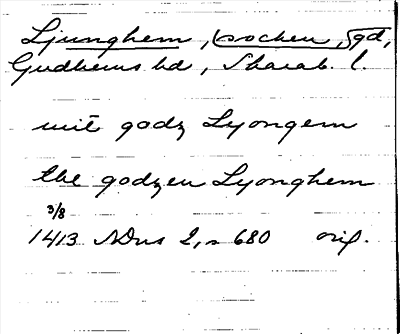 Ljunghem, (socken, Sgd,
Gudhems hd, Skarab. l.
mit godz Lyongem
the godzen Lyonghem
3/8
1413 NDns 2, s 680 orig.